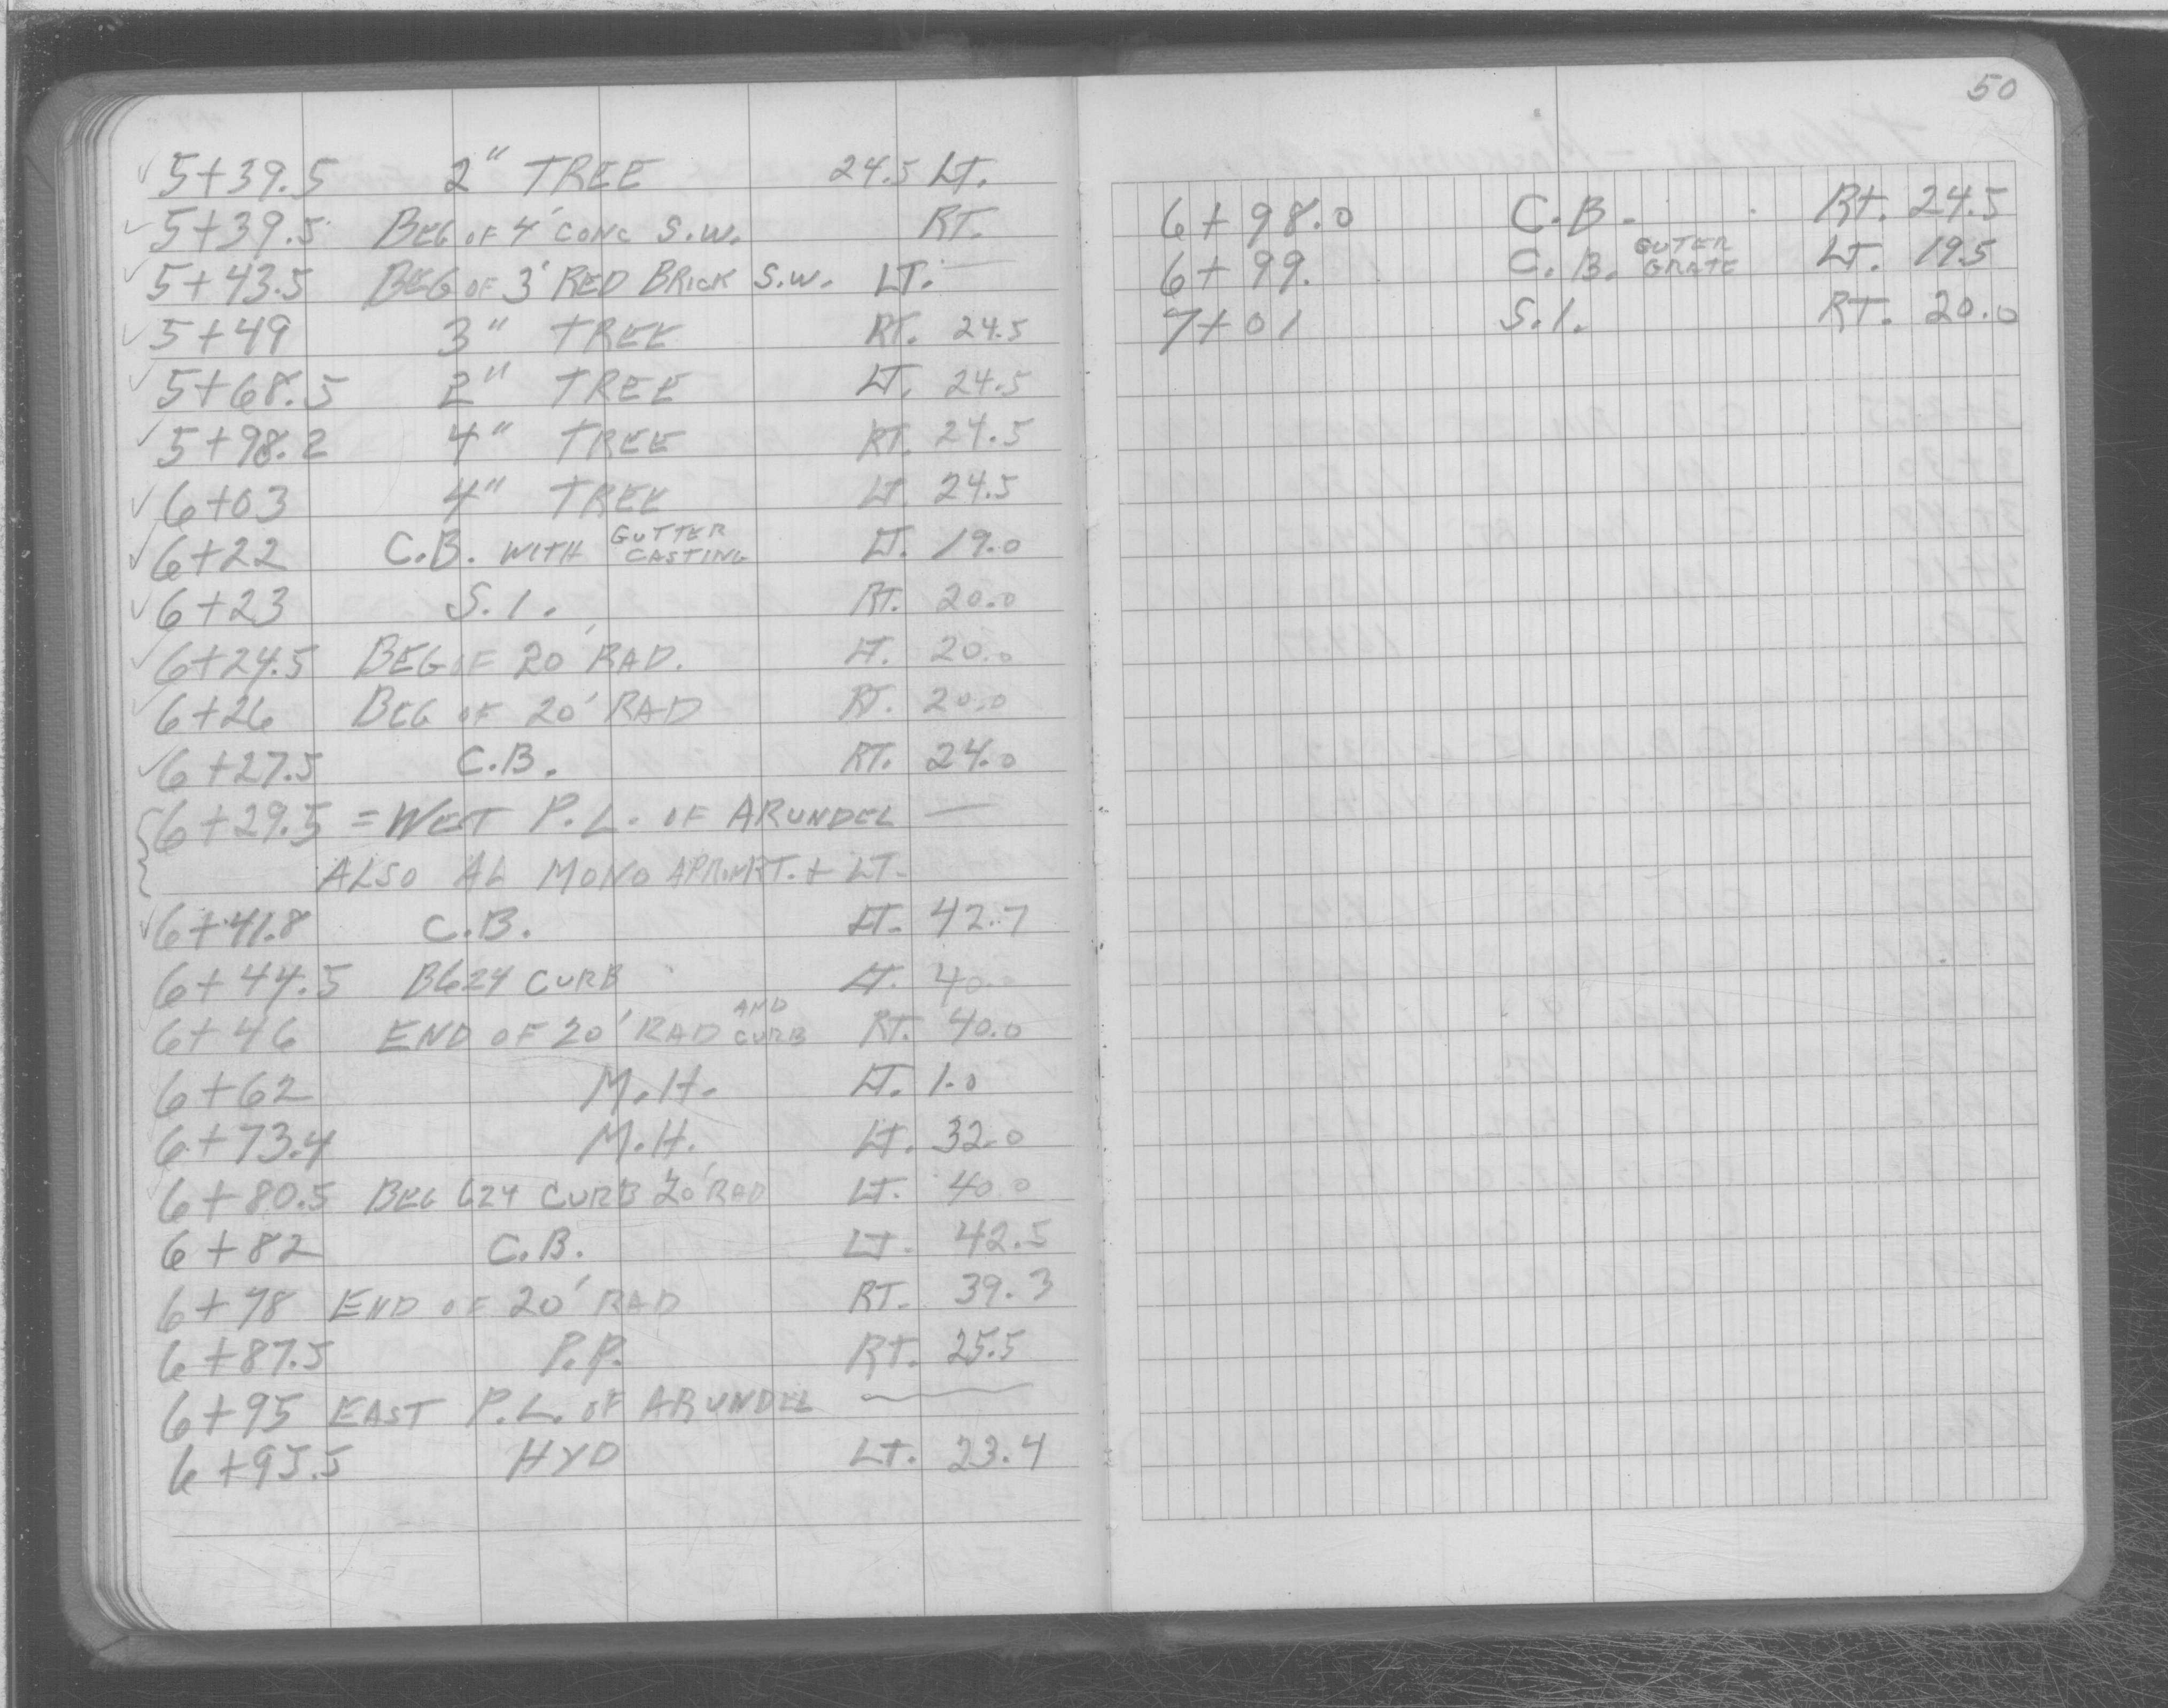 5+39.5 2" TREE 24.5 LT.
5+39.5 BEG OF 4' CONC S.W. RT.
5+43.5 BEG OF 3' RED BRICK S.W. LT. —
5+49 3" TREE RT. 24.5
5+68.5 2" TREE LT. 24.5
5+98.2 4" TREE RT. 24.5
6+03 4" TREE LT. 24.5
6+22 C.B. WITH GUTTER CASTING LT. 19.0
6+23 S.I. RT. 20.0
6+24.5 BEG OF 20' RAD. LT. 20.0
6+26 BEG OF 20' RAD RT. 20.0
6+27.5 C.B. RT. 24.0
6+29.5 = WEST P.L. OF ARUNDEL —
ALSO MONO RT. + LT.
6+41.8 C.B. LT. 42.7
6+44.5 B624 CURB LT. 40
6+46 END OF 20' RAD AND CURB RT. 40.0
6+62 M.H. LT. 1.0
6+73.4 M.H. LT. 32.0
6+80.5 BEG 624 CURB 20' RAD LT. 40.0
6+82 C.B. LT. 42.5
6+78 END OF 20' RAD RT. 39.3
6+87.5 P.P. RT. 25.5
6+95 EAST P.L. OF ARUNDEL —
6+95.5 HYD LT. 23.4
50
6+98.0 C.B. Rt. 24.5
6+99. C.B. GUTER GRATE LT. 19.5
7+01 S.I. RT. 20.0